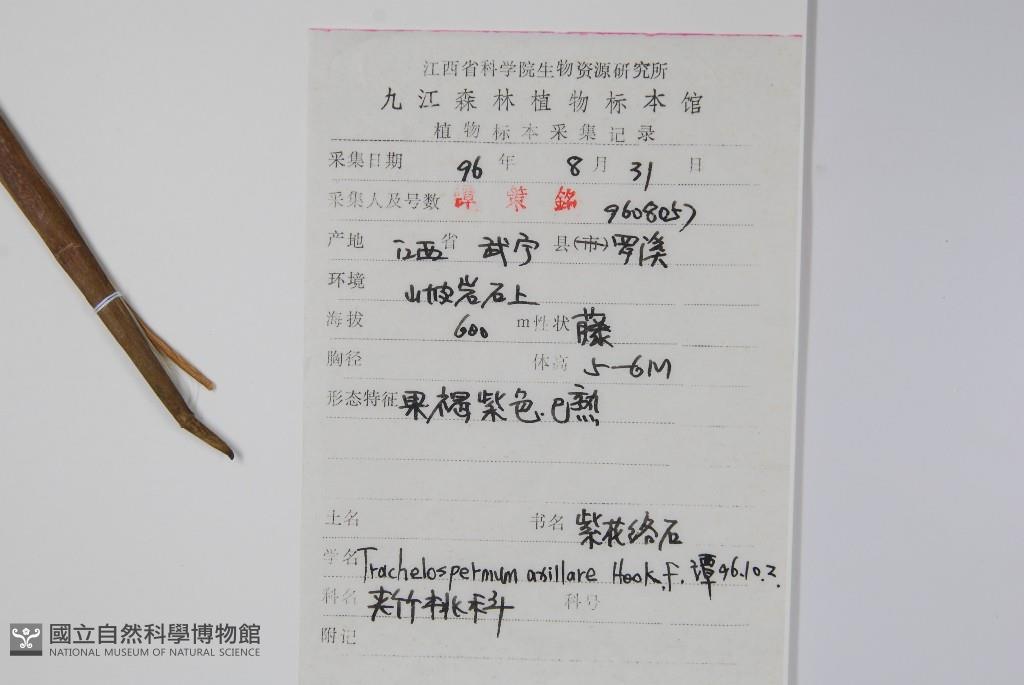 江西省科学院生物资源研究所
九江森林植物标本馆
植物标本采集记录
采集日期 96 年 8 月 31 日
采集人及号数 譚策銘 9608057
产地 江西 省 武宁 县(市) 罗溪
环境 山坡岩石上
海拔 600 m 性状 藤
胸径 体高 5-6M
形态特征 果褐紫色.已熟
土名 书名 紫花络石
学名 Trachelospermum axillare Hook.f. 譚96.10.2.
科名 夹竹桃科 科号
附记
國立自然科學博物館
NATIONAL MUSEUM OF NATURAL SCIENCE